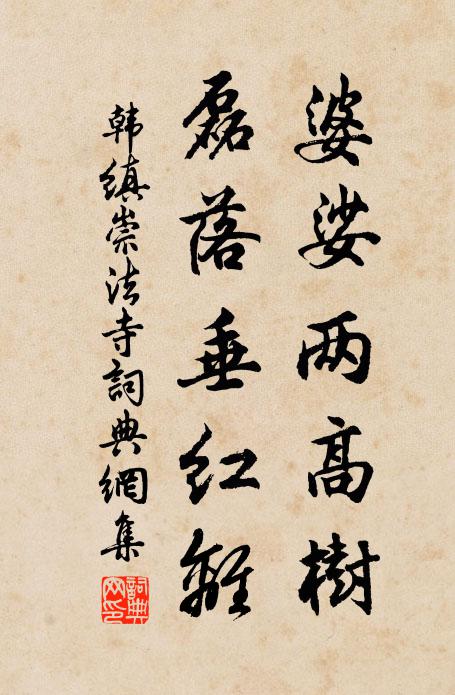 婆娑两高樹
磊落垂红離
韩縝崇法寺詞典網集
詞典
网印